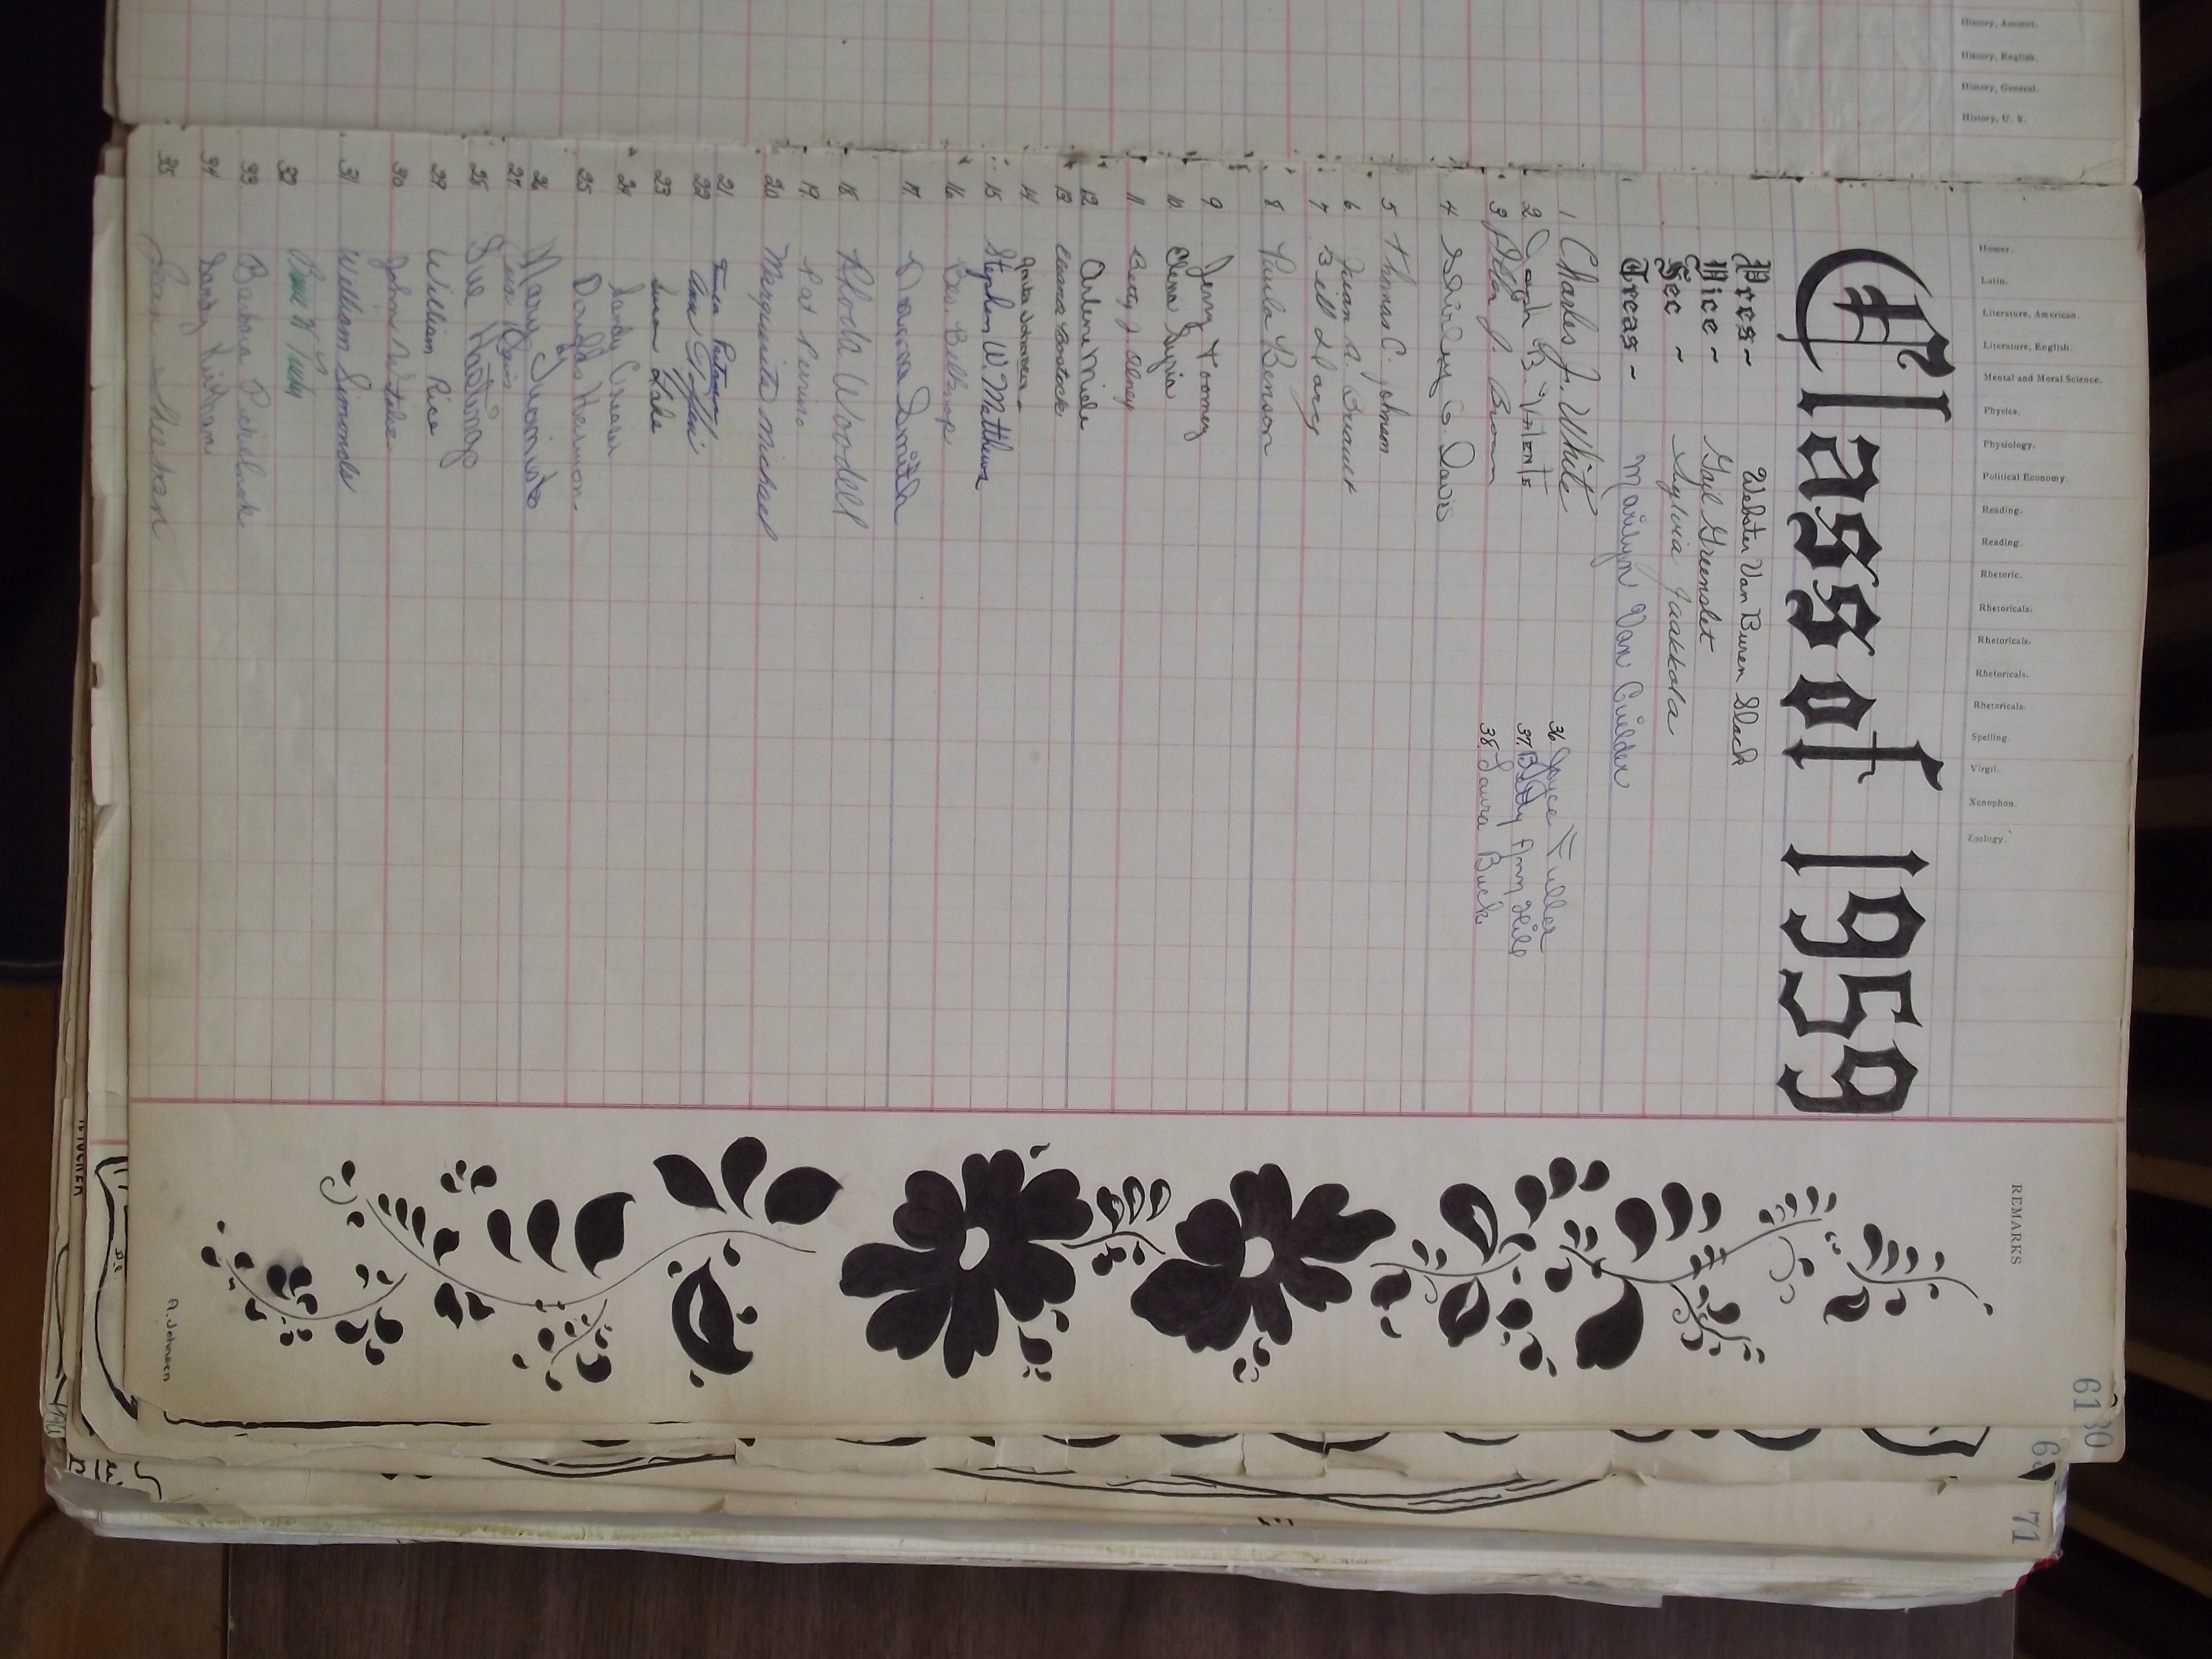 History, Ancient.
History, English.
History, General.
History, U. S.
Homer.
Latin.
Literature, American.
Literature, English.
Mental and Moral Science.
Physics.
Physiology.
Political Economy.
Reading.
Reading.
Rhetoric.
Rhetoricals.
Rhetoricals.
Rhetoricals.
Rhetoricals.
Spelling.
Virgil.
Xenophon.
Zoology.
REMARKS
6130
71
Class of 1959
Pres ~ Webster Van Buren Slack
Vice ~ Gail Greenslet
Sec ~ Sylvia Jaakkola
Treas ~ Marilyn Van Guilder
1 Charles J. White
2 Joseph B.
3 J. Brown
4 Shirley G. Davis
5 Thomas C. Johnson
6 A.
7 Bill Darcy
8 Paula Benson
9 Jerry Toomey
10 Elena Syria
11 Betty J. Olney
12 Arlene Minde
13 Eleanor Bostock
14 Anita Johnson
15 Stephen W. Matthews
16 Bev. Belknap
17 Donna Smith
18 Rhoda Woodell
19 Pat Perrino
20 Marguerite Michael
21
22 Ann
23 Simon Lake
24 Sandy Crosier
25 Douglas Harmon
26 Mary Suominto
27 Davis
28 Sue Hastings
29 William Rice
30 John
31 William Simonds
32 Tully
33 Barbara
34 Sandy
35 Jean Sheehan
36 Joyce Fuller
37 Betty Ann Hill
38 Laura Buck
A. Johnson